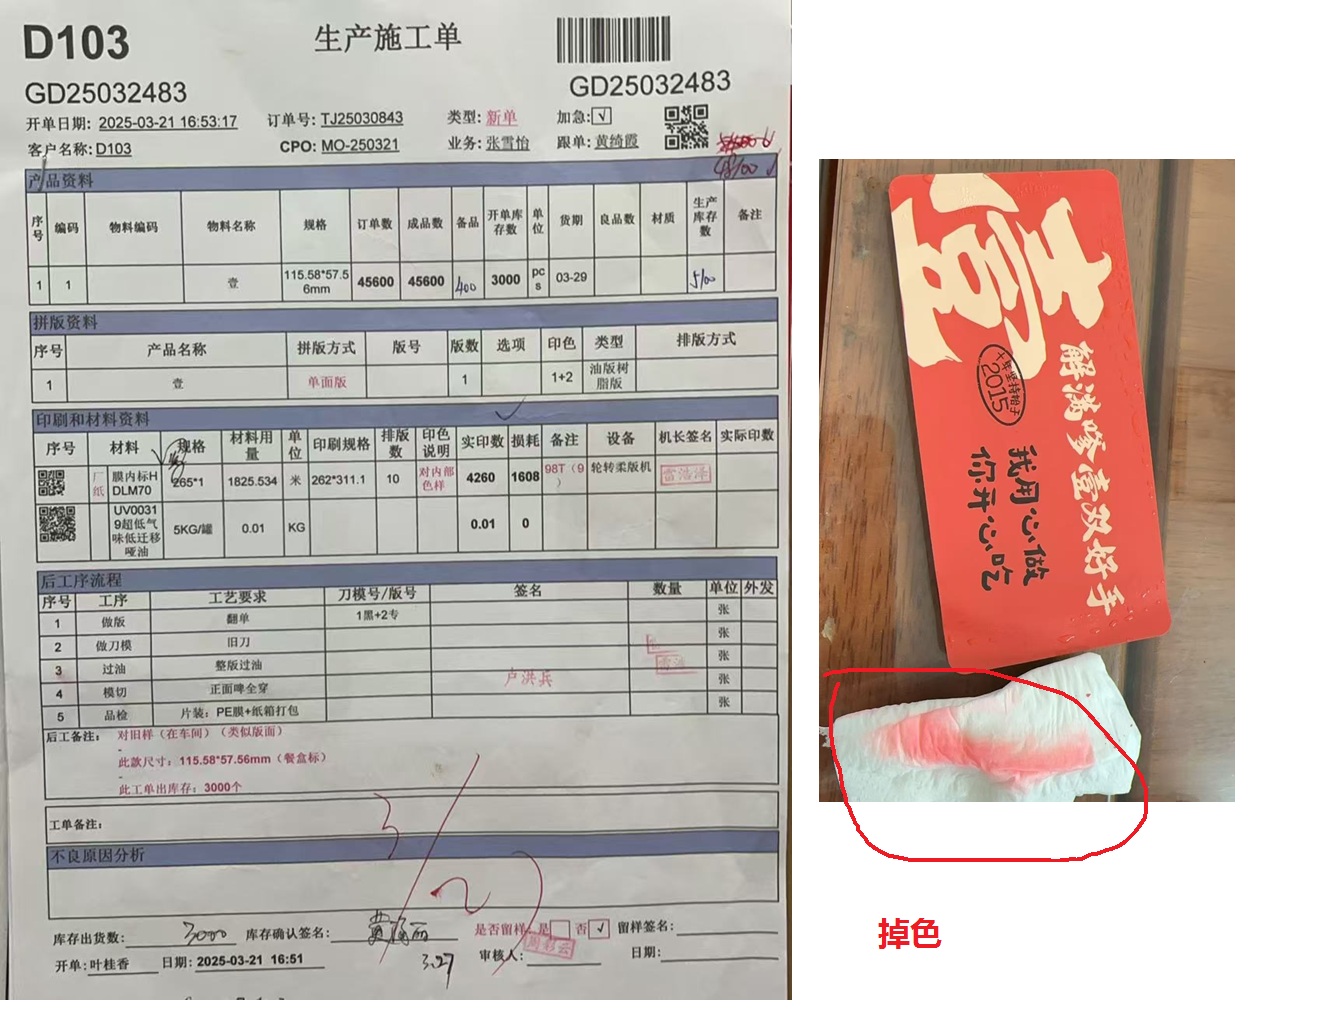 D103
生产施工单
GD25032483
GD25032483
开单日期: 2025-03-21 16:53:17
订单号: TJ25030843
类型: 新单
加急: √
客户名称: D103
CPO: MO-250321
业务: 张雪怡
跟单: 黄绮霞
48100
产品资料
序号 编码 物料编码 物料名称 规格 订单数 成品数 备品 开单库存数 单位 货期 良品数 材质 生产库存数 备注
1 1 壹 115.58*57.56mm 45600 45600 400 3000 pcs 03-29 5100
拼版资料
序号 产品名称 拼版方式 版号 版数 选项 印色 类型 排版方式
1 壹 单面版 1 1+2 油版树脂版
印刷和材料资料
序号 材料 规格 材料用量 单位 印刷规格 排版数 印色说明 实印数 损耗 备注 设备 机长签名 实际印数
厂纸 膜内标HDLM70 265*1 1825.534 米 262*311.1 10 对内部色样 4260 1608 98T（9） 轮转柔版机 雷浩泽
UV00319超低气味低迁移哑油 5KG/罐 0.01 KG 0.01 0
后工序流程
序号 工序 工艺要求 刀模号/版号 签名 数量 单位 外发
1 做版 翻单 1黑+2专 张
2 做刀模 旧刀 张
3 过油 整版过油 张
4 模切 正面啤全穿 卢洪兵 张
5 品检 片装: PE膜+纸箱打包 张
后工备注: 对旧样（在车间）（类似版面）
-
此款尺寸: 115.58*57.56mm（餐盒标）
-
此工单出库存: 3000个
工单备注:
不良原因分析
库存出货数: 3000
库存确认签名:
是否留样: 是 否 √
留样签名:
开单: 叶桂香
日期: 2025-03-21 16:51
3.27
审核人: 周彩云
日期:
壹
解满嗲壹双好手
十年坚持给予
2015
我用心做
你开心吃
掉色